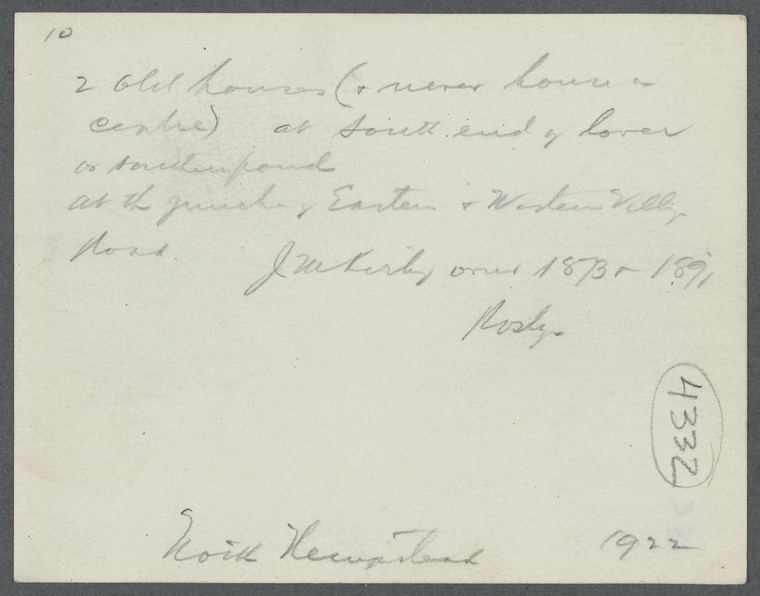 10
2 old houses (+ newer house in
centre) at South end of lower
or southern pond
at the junction of Eastern + Western Valley
Road.
J M Kirby owner 1873 + 1891
Roslyn
4332
North Hempstead 1922